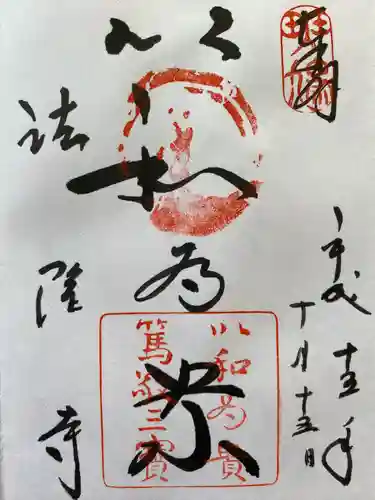 奉拝
平成十三年
十月十三日
以和為貴
以和為貴
篤敬三寶
法隆寺